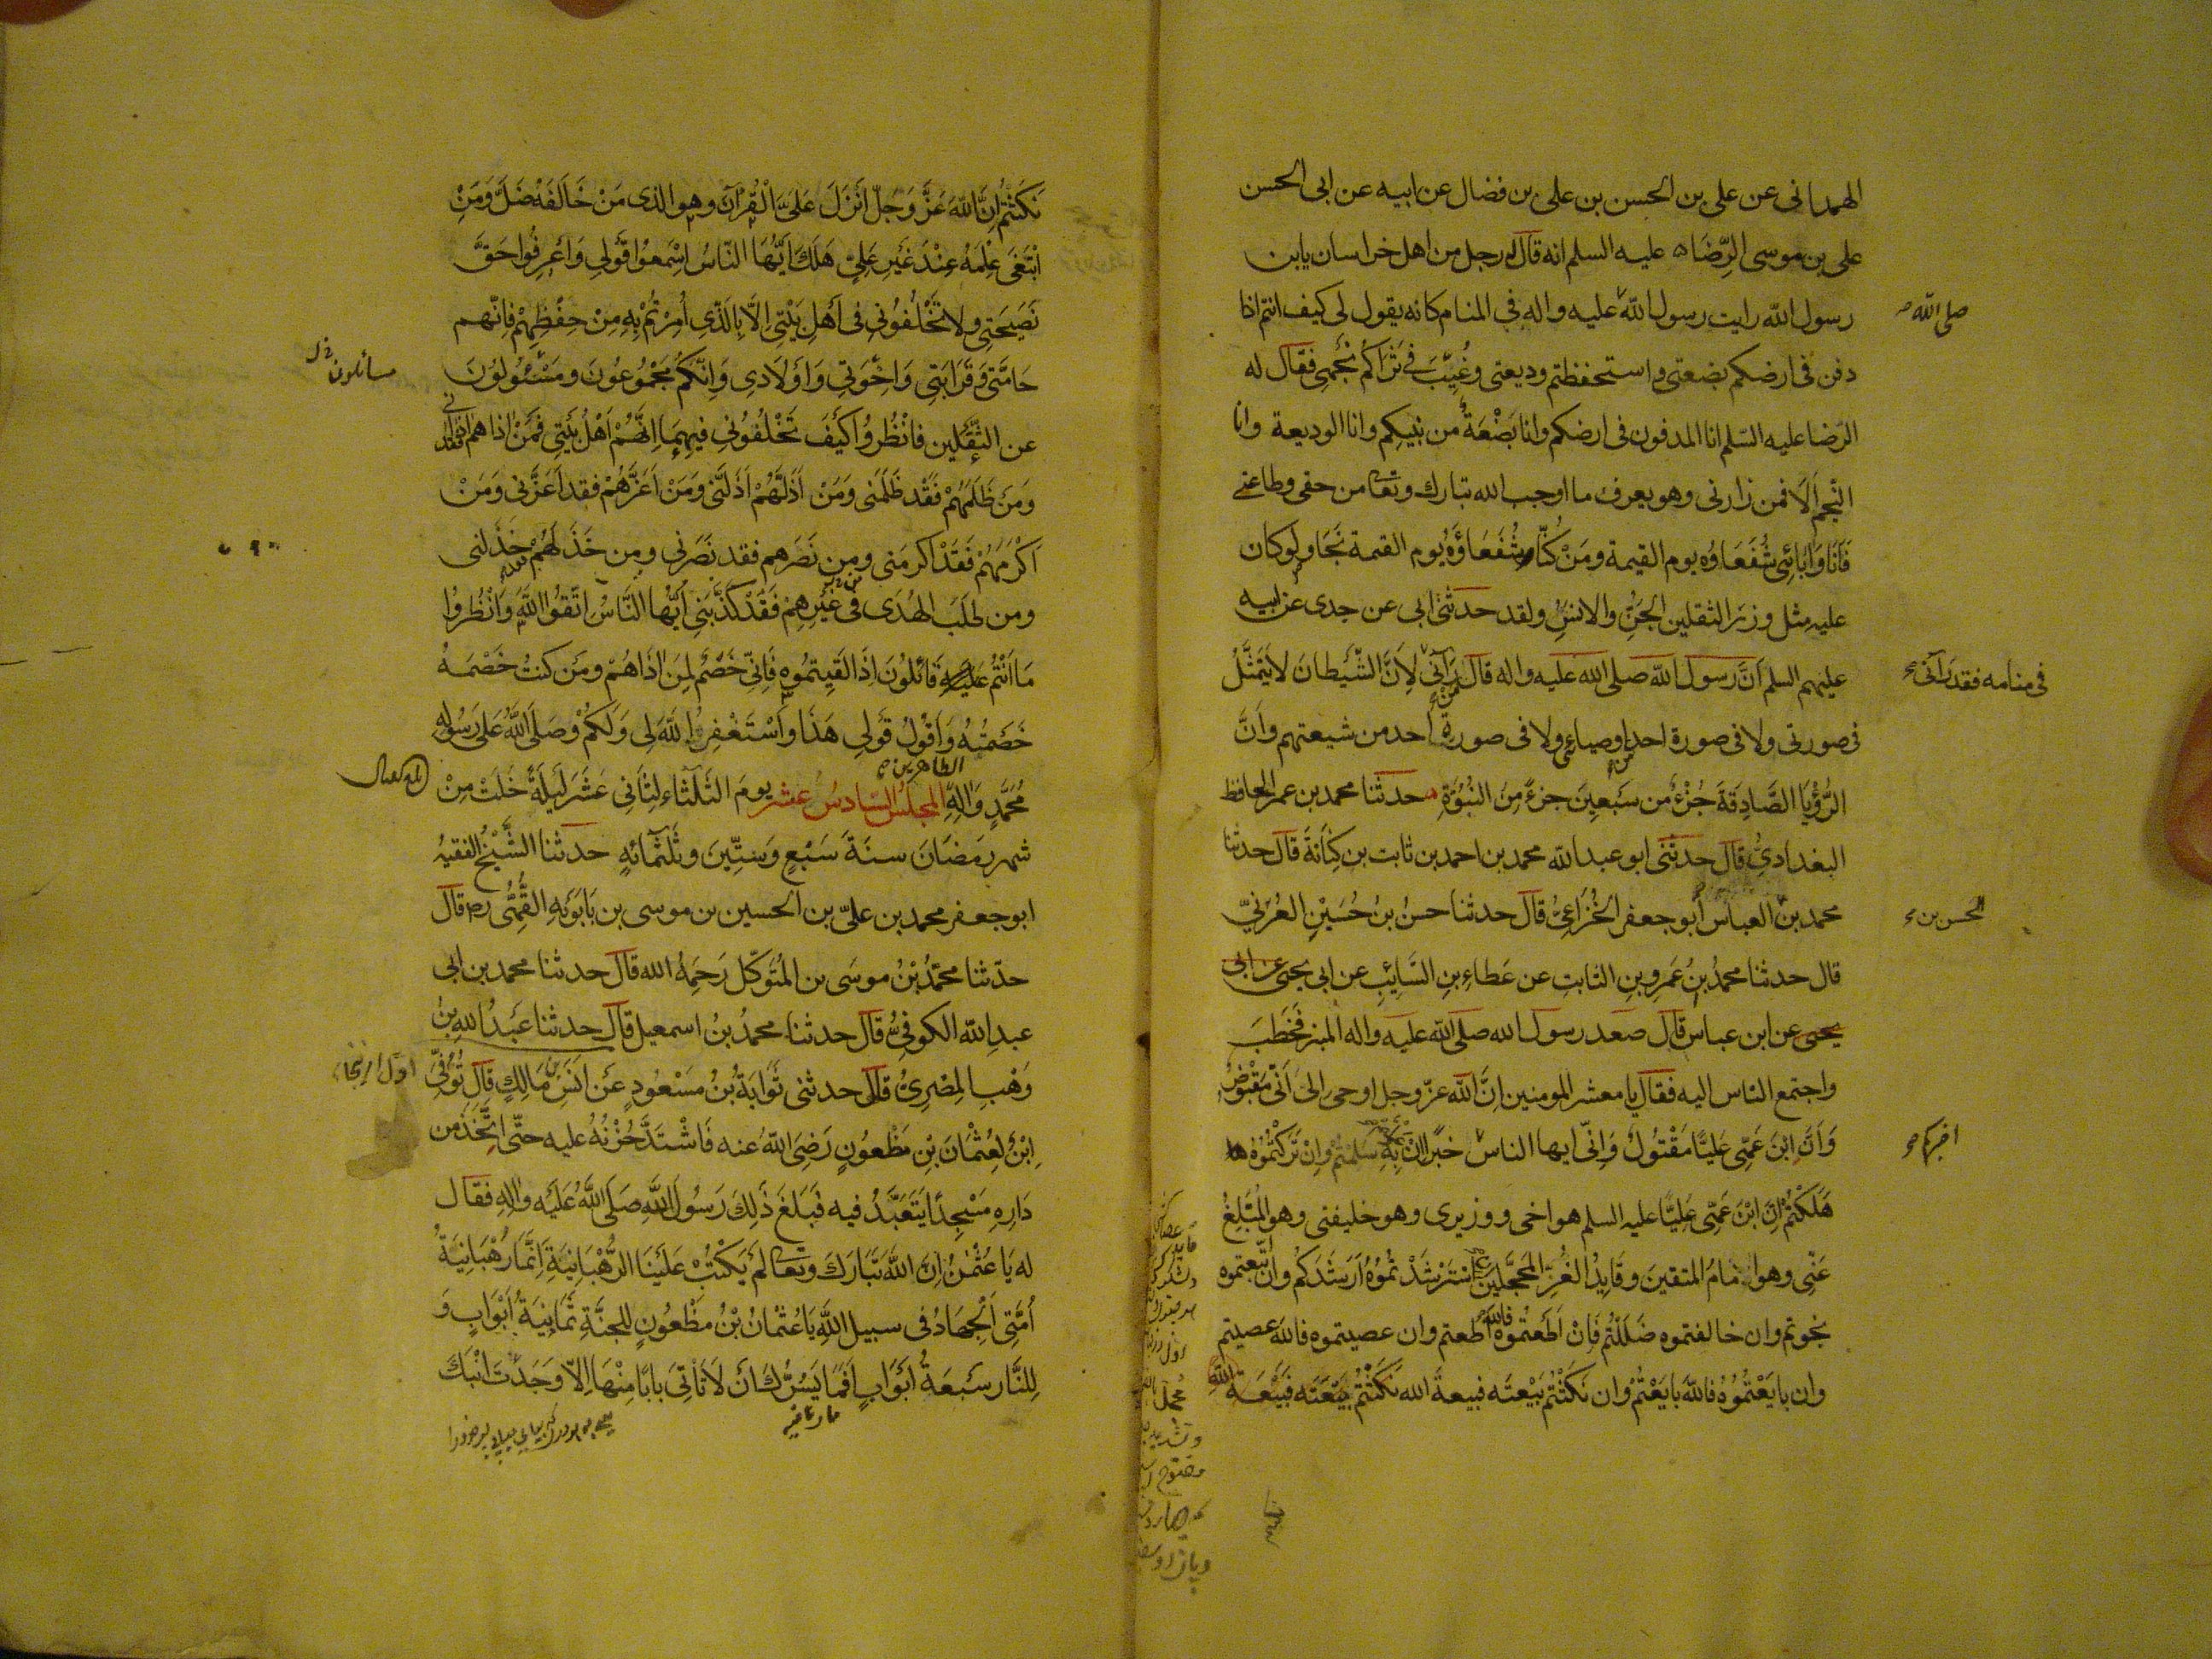 الهمدانى عن على بن الحسن بن على بن فضال عن ابيه عن ابى الحسن
على بن موسى الرِّضَا عليه السلم انه قال له رجل من اهل خراسان يابن
رسول الله رايت رسول الله عليه واله فى المنام كانه يقول لى كيف انتم اذا
صلى الله
دفن فى ارضكم بضعتى واستحفظتم وديعتى وغُيِّبَ فى ثَرَاكُم نَجْمِى فقال له
الرّضا عليه السّلم انا المدفون فى ارضكم وانا بَضْعَةٌ من نبيكم وانا الوديعة وانا
النّجم اَلَا فمن زارنى وهو يعرف ما اوجب الله تبارك وتعا من حقى وطاعتى
فَاَنَا وَاٰبَائِى شُفَعَاؤه يوم القيمة ومَنْ كُنَّا شُفَعَاؤَهُ يوم القيمة نَجَا ولَو كان
عليه مثل وزر الثقلين الجنِّ والانسِ ولقد حدثنى ابى عن جدى عن ابيه
عليهم السلم اَنَّ رسول الله صلى الله عليه واله قال مَن رَآنى لِاَنَّ الشَّيْطَانَ لَا يَتَمَثَّلُ
فى منامه فقد رَآنى
فى صورتى ولا فى صورة احد من اوصيائى ولا فى صورة احد من شيعتهم وانَّ
الرُّؤيَا الصَّادِقَةَ جُزْءٌ من سَبعِينَ جزءً مِنَ النُبُوّةِ حدثنا محمد بن عمر الحافظ
البغدادىُّ قال حدثنى ابو عبد الله محمد بن احمد بن ثابت بن كِنَانَةَ قال حدثنا
محمد بن العباس أبو جعفر الخُزَاعِىُّ قال حدثنا حسنُ بنُ حُسَيْنٍ العُرَنِىّ
الحسن بن
قال حدثنا محمدُ بنُ عَمرِو بنِ الثابتِ عن عَطاءِ بنِ السَّائِبِ عن ابى يحيى عن ابى
يحيى عن ابن عباس قال صعد رسول الله صلى الله عليه واله المنبر فَخَطَبَ
واجتمع الناس اليه فقال يا معشر المومنين اِنَّ الله عزّ وجل اوحى الىَّ اَنّى مَقْبُوضٌ
وَاَنَّ اِبْنَ عَمّى عَلِيًّا مَقْتُولٌ وَاِنّى ايها الناس خبرًا اِنْ بِهِ سَلِمْتُمْ وَاِنْ تَرَكْتُمُوْهُ
اخبركم
هَلَكْتُمْ اِنَّ ابْنَ عَمِّى عَلِيًّا عليه السلم هو اخى ووزيرى وهو خليفتى وهو المُبَلِّغُ
عَنِّى وهو اِمَامُ المتقينَ وقَايِدُ الغُرِّ المُحَجَّلِينَ اِنْ اسْتَرْشَدْتُمُوْهُ اَرْشَدَكُم وان اتَّبَعتموه
نجوتم وان خالفتموه ضَلَلْتُم فَاِنْ اَطَعْتُمُوهُ فالله اَطعتم وان عصيتموه فالله عصيتم
وان بايَعْتُمُوْهُ فالله بَايَعْتُمْ وان نَكَثْتُمْ بَيْعتَه فبيعةَ الله نَكَثْتُمْ بَيْعَتَه فَبَيْعَةَ اللهِ
نَكَثْتُمْ اِنَّ اللهَ عَزَّ وَجَلَّ اَنْزَلَ عَلَىَّ الْقُرْآنَ وهو الذى مَنْ خَالَفَهُ ضَلَّ وَمَنِ
ابْتَغَى عِلْمَهُ عِنْدَ غَيْرِ عَلِىٍّ هَلَكَ اَيُّهَا النّاسُ اسْمَعُوْا قَوْلِى وَاعْرِفُوا حَقَّ
نَصِيحَتى ولا تَخْلُفُونِى فى اَهْلِ بَيْتِى اِلَّا بِالَّذِى اُمِرْتُمْ بِهِ مِنْ حِفْظِهِمْ فَاِنّهم
حَامَّتِى وَقَرَابَتِى وَاخْوَتِى وَاَوْلَادِى وَاِنَّكُم مَجْمُوعُونَ ومَسْئُولُوْنَ
مسائلون
عن الثَّقَلَين فانْظُرُوا كَيْفَ تَخْلُفُونِى فيهِمَا اِنَّهُمْ اَهْلُ بَيْتِى فَمَنْ اٰذاهم اٰذانى
وَمَن ظَلَمَهُمْ فَقَد ظَلَمَنى وَمَنْ اَذَلَّهُمْ اَذَلَّنى وَمَنْ اَعَزَّهُمْ فقد اَعَزَّنى وَمَنْ
اَكْرَمَهُمْ فَقَدْ اَكرَمَنى ومن نَصَرَهم فقد نَصَرَنى ومن خَذَلَهُمْ خَذَلَنى
ومن طَلَبَ الهُدَى فى غَيْرِهِمْ فَقَدْ كَذَّبَنِى اَيُّها النَّاسُ اتَّقُوا اللهَ وَانْظُرُوا
مَا اَنْتُم قَائِلُونَ اِذَا لَقِيتمُوه فَاِنّى خَصْمٌ لِمَن اٰذَاهُمْ ومَن كنتُ خَصْمَهُ
خَصَمْتُهُ وَاَقُولُ قَوْلِى هَذَا وَاَسْتَغْفِرُ اللهَ لِى وَلَكُمْ وَصَلَّى اللهُ عَلَى رَسُولِهِ
مُحَمَّدٍ وَاٰلِهِ الطاهرين المجلسُ السَّادسُ عشر يومَ الثَّلَثَاءِ لِثَانِى عَشَرَ لَيْلَةً خَلَتْ مِنْ
شهر رَمَضَانَ سنةَ سَبْعٍ وَستِّينَ وثَلثمَائهٍ حدثنا الشَّيْخُ الفقيهُ
ابو جعفر محمد بن علىّ بن الحسين بن موسى بن بَابَوَيْهِ القُمِّى ره قال
حدّثنا محمّدُ بْنُ موسَى بن المُتَوكّل رَحِمَهُ الله قال حدثنا محمد بن ابى
عبدِ الله الكوفىُّ قال حدثنا محمدُ بنُ اسمعيل قال حدثنا عَبْدُ اللهِ بنُ
وَهْبٍ المِصْرِىُّ قال حدثنى ثَوَابَةُ بْنُ مَسْعُودٍ عَن اَنَسِ بن مَالِكٍ قال تُوُفِّىَ
اِبْنٌ لِعُثْمَانَ بْنِ مَظْعُونٍ رَضِىَ اللهُ عنه فَاشْتَدَّ حُزْنُهُ عليه حتّى اتَّخَذَ من
دَارِهِ مَسْجِدًا يَتَعَبَّدُ فيه فَبَلَغَ ذَلِكَ رَسُولَ اللهِ صَلَّى اللهُ عَلَيْهِ واٰلِهِ فقال
له يَا عُثْمٰنُ اِنَّ اللهَ تَبَارَكَ وتعا لَمْ يَكْتُبْ عَلَيْنَا الرُّهْبَانِيَّةَ اِنَّمَا رُهْبَانِيَةُ
اُمَّتِى اَلْجِهَادُ فى سبيل اللهِ يَا عُثْمَانُ بْنُ مَظْعُونٍ لِلجنَّةِ ثَمَانِيَةُ اَبْوَابٍ وَ
لِلنَّار سَبعَةُ اَبْوَابٍ اَفَمَا يَسُرُّكَ اَنْ لَا تَأتِى بَابًا مِنْهَا اِلّا وَجَدتَ ابْنَكَ